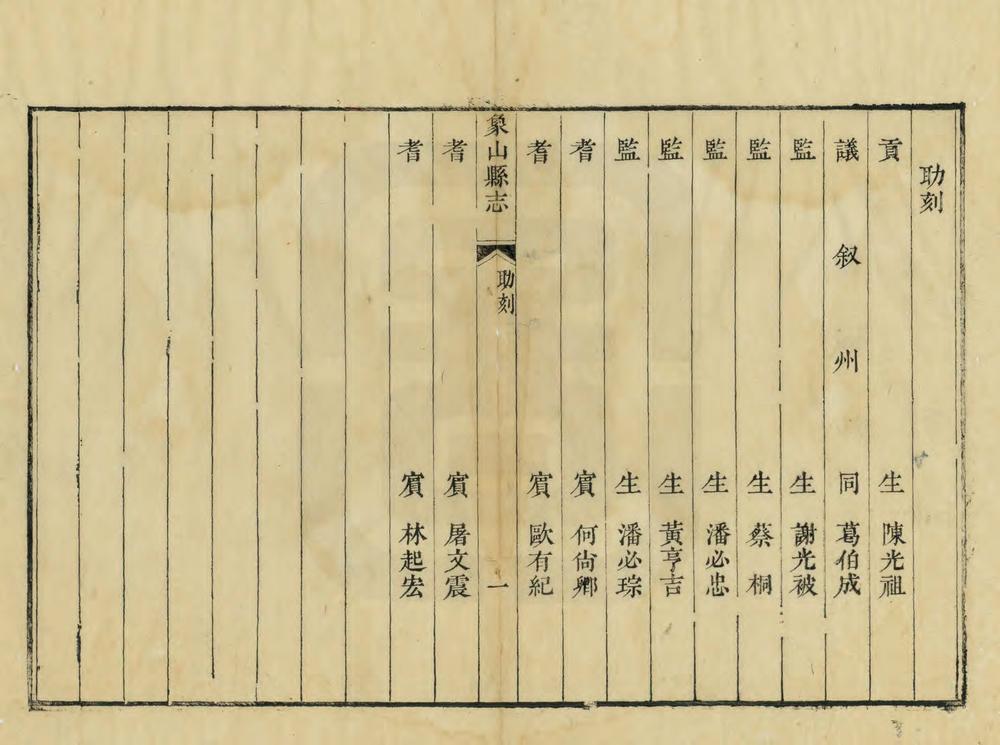 助刻
貢生陳光祖
議叙州同葛伯成
監生謝光被
監生蔡桐
監生潘必忠
監生黃亨吉
監生潘必琮
耆賔何尙鄉
耆賔歐有紀
象山縣志 助刻 一
耆賔屠文震
耆賔林起宏